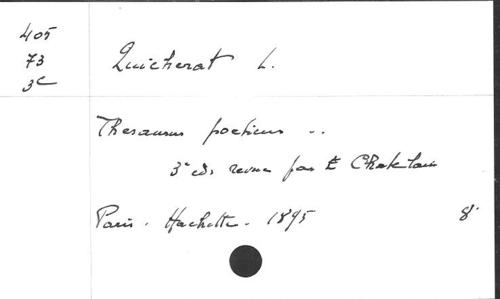 405
73
3c
Quicherat L.
Thesaurus poeticus ..
3e éd. revue par E Chatelain
Paris. Hachette. 1895 8°